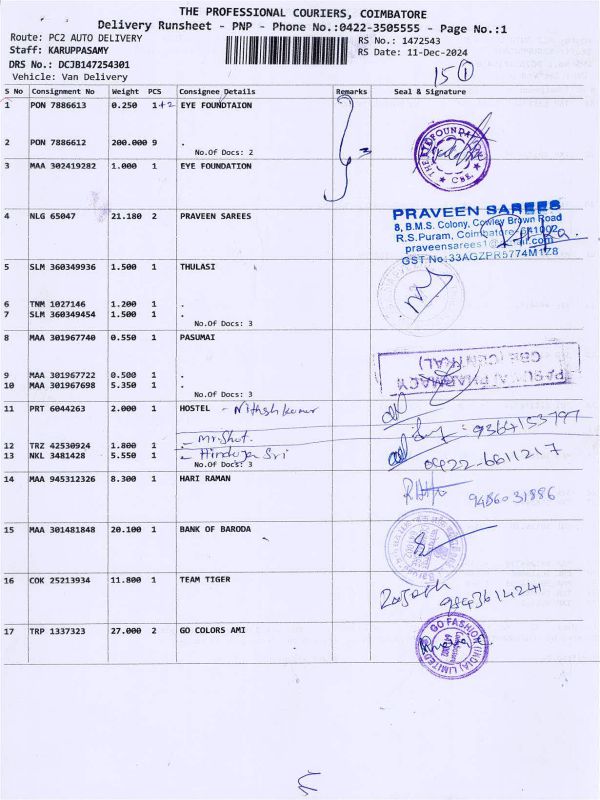 THE PROFESSIONAL COURIERS, COIMBATORE
Delivery Runsheet - PNP - Phone No.:0422-3505555 - Page No.:1
Route: PC2 AUTO DELIVERY
RS No.: 1472543
Staff: KARUPPASAMY
RS Date: 11-Dec-2024
DRS No.: DCJB147254301
Vehicle: Van Delivery
15 1
S No Consignment No Weight PCS Consignee Details Remarks Seal & Signature
1 PON 7886613 0.250 1+2 EYE FOUNDTAION
2 PON 7886612 200.000 9 .
No.Of Docs: 2
3 MAA 302419282 1.000 1 EYE FOUNDATION
3
THE EYE FOUNDATION
★ CBE. ★
4 NLG 65047 21.180 2 PRAVEEN SAREES
PRAVEEN SAREES
8, B.M.S. Colony, Cowley Brown Road
R.S.Puram, Coimbatore-641002
GST No:33AGZPR5774M1Z8
5 SLM 360349936 1.500 1 THULASI
6 TNM 1027146 1.200 1 .
7 SLM 360349454 1.500 1 .
No.Of Docs: 3
8 MAA 301967740 0.550 1 PASUMAI
9 MAA 301967722 0.500 1 .
10 MAA 301967698 5.350 1 .
No.Of Docs: 3
PHARMACY
CBE (CENTRAL)
11 PRT 6044263 2.000 1 HOSTEL - Nithish kumar
12 TRZ 42530924 1.800 1
9364153797
13 NKL 3481428 5.550 1 - Hinduja Sri
No.Of Docs: 3
0422-6611217
14 MAA 945312326 8.300 1 HARI RAMAN
9486031886
15 MAA 301481848 20.100 1 BANK OF BARODA
16 COK 25213934 11.800 1 TEAM TIGER
Rajesh
9843614241
17 TRP 1337323 27.000 2 GO COLORS AMI
GO FASHION (INDIA) LIMITED